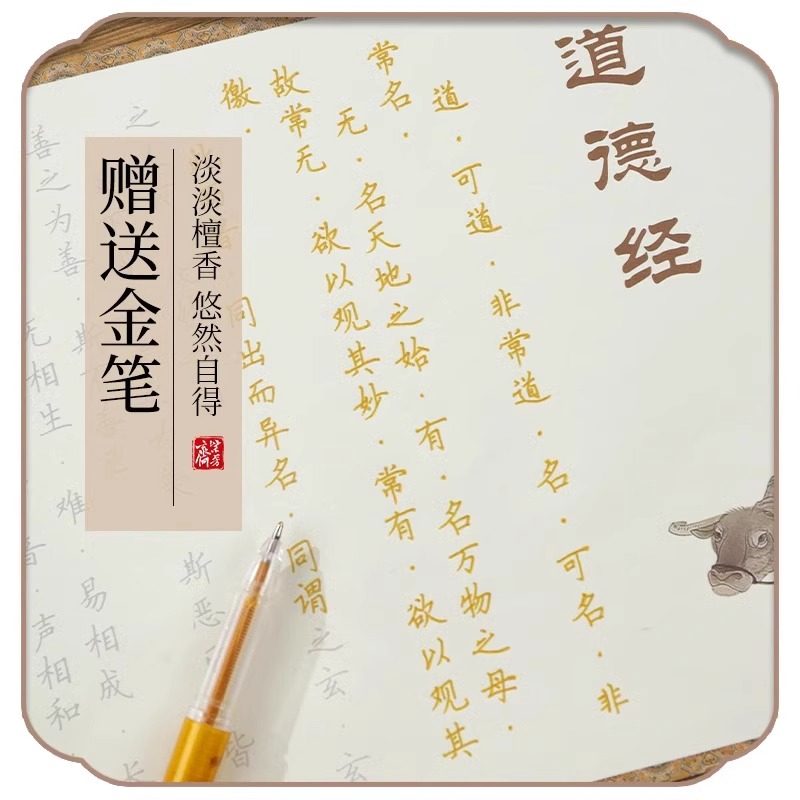 道德经
道．可道．非常道．名．可名．非
常名．
无．名天地之始．有．名万物之母．
故常无．欲以观其妙．常有．欲以观其
徼．
同出而异名．同谓之玄．玄
之
斯恶
皆
善之为善．斯
无相生．难．易相成．长
声相和．
淡淡檀香 悠然自得
赠送金笔